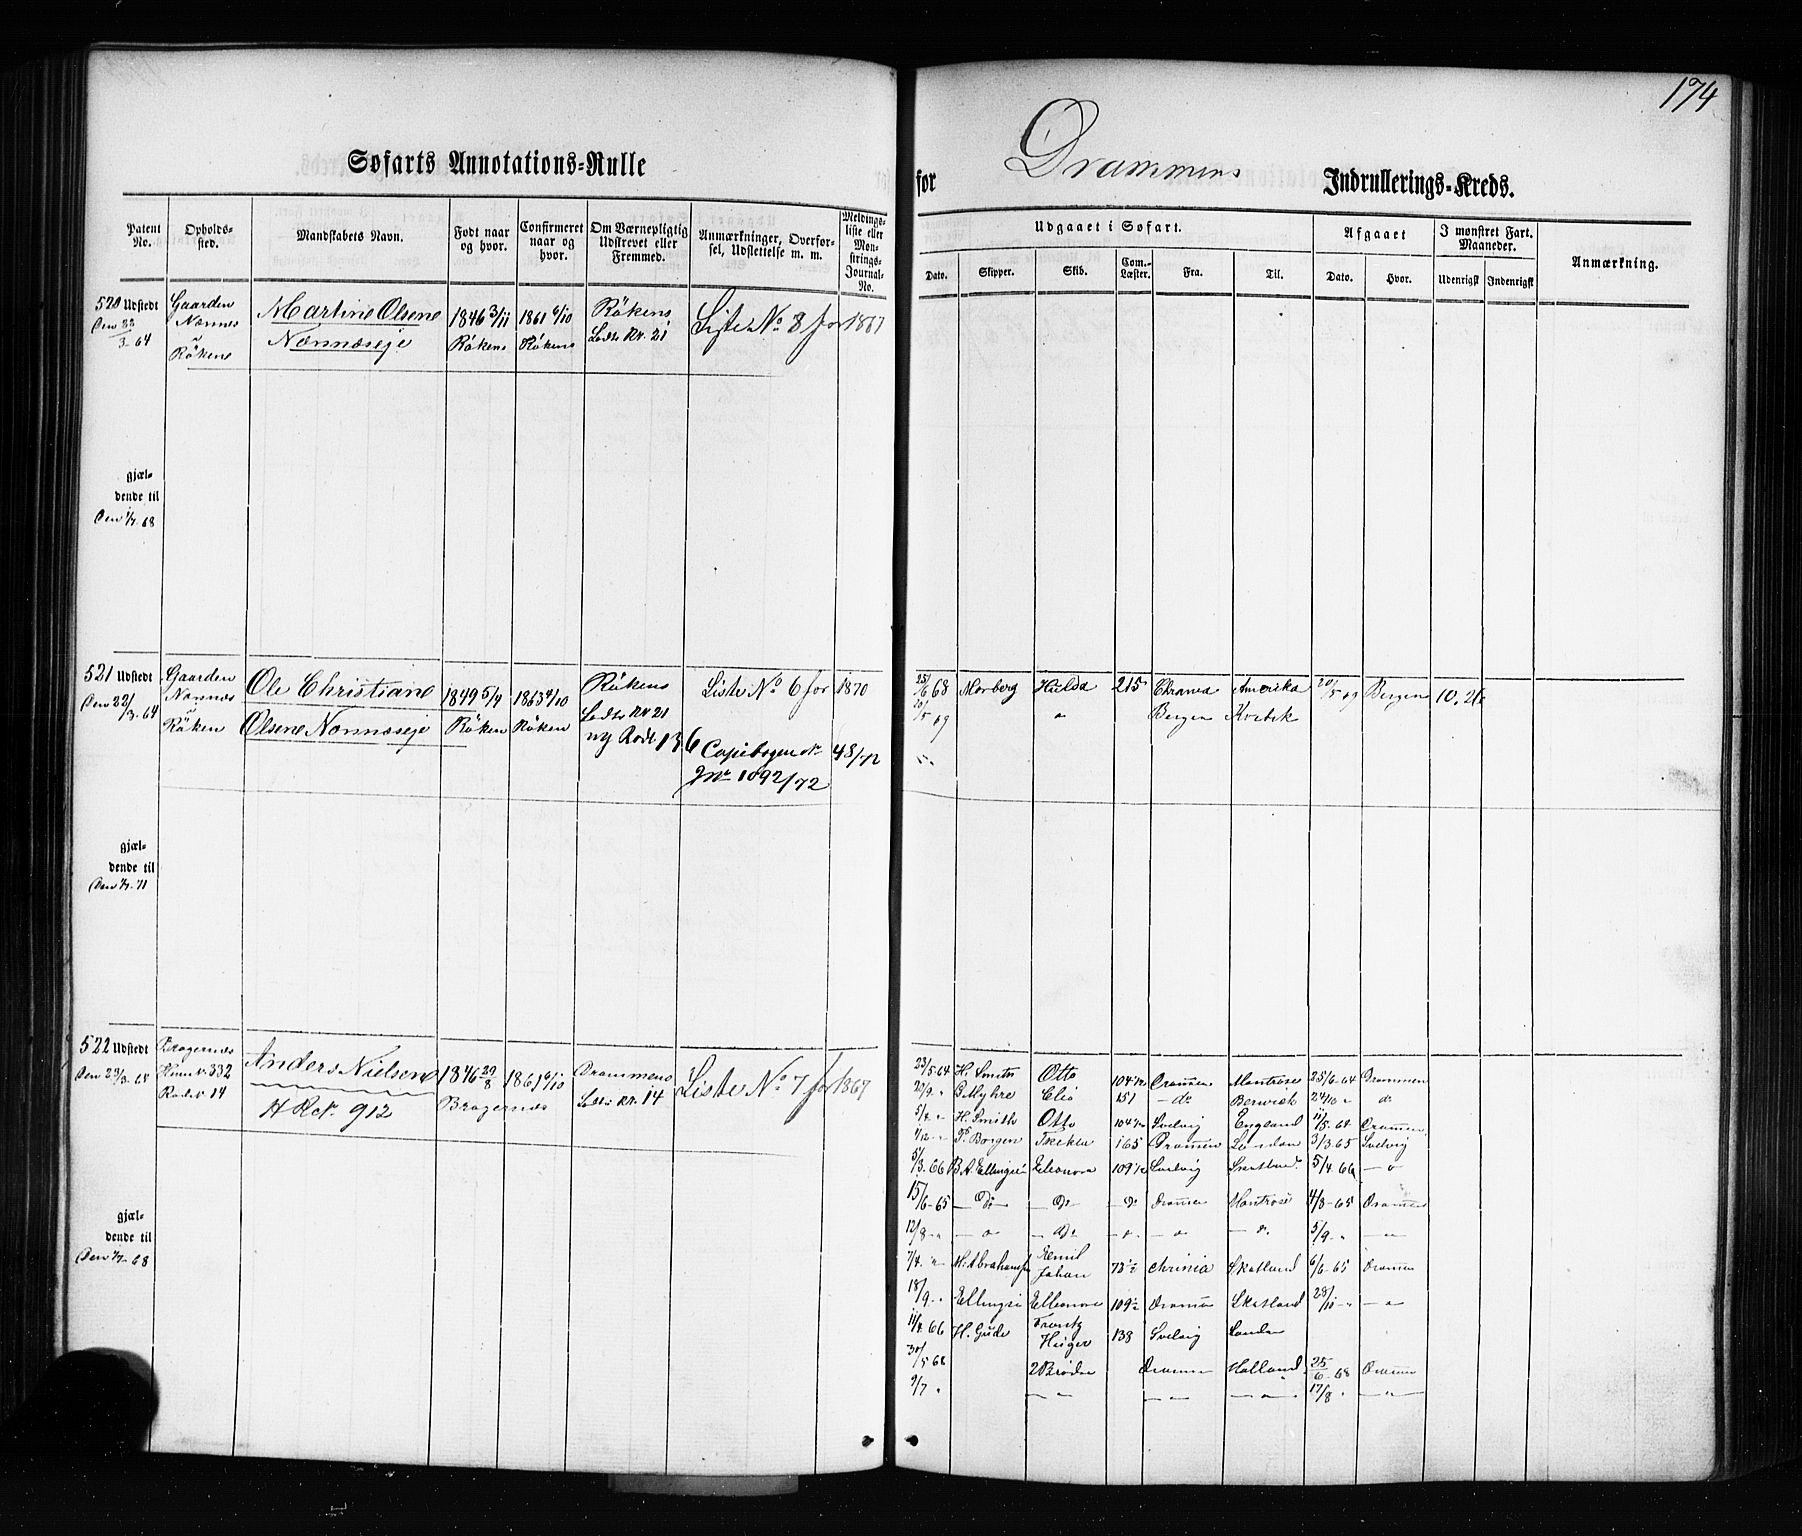 174
Søfarts Annotations-Rulle for Drammens Indrullerings-Kreds.
Patent No.
Opholds-sted.
Mandskabets Navn.
Født naar og hvor.
Confirmeret naar og hvor.
Om Værnepligtig Udskrevet eller Fremmed.
Anmærkninger, Overfør-sel, Udslettelse m. m.
Meldings-liste eller Møn-strings-Journal-No.
Udgaaet i Søfart.
Dato.
Skipper.
Skib.
Com.-Læster.
Fra.
Til.
Afgaaet
Dato.
Hvor.
I mønstret Fart. Maaneder.
Udenrigsk
Indenrigsk
Anmærkning.
520 Udstedt
Den 22/3-64
Gaarden
Nærnes
Røken
Martine Olsene
Nærnæseje
1846 3/11
Røkens
1861 6/10
Røkens
Røkens
Lodts Nr. 21
Liste No 8 for 1867
gjæl-
dende til
Den 1/7-68
521 Udstedt
Den 22/3-64
Gaarden
Nærnes
Røken
Ole Christiane
Olsene Nærnæseje
1849 5/4
Røken
1863 4/10
Røken
Røkens
Lodts Nr 21
ny Rode 136
Liste No 6 for 1870
Copibogen No 48/72
Jnr 1092/72
25/6 68 Morberg Hulda 215 Chrania Amerika 20/5 69 Bergen 10.26
20/5 69 " Bergen Kvebek
gjæl-
dende til
Den 1/7-71
522 Udstedt
Den 23/3-64
Bragernæs
Huus No 332
Rode No 14
Anders Nielsen
H Rct. 912
1846 29/8
Bragernæs
1861 6/10
Drammens
Lodts Nr. 14
Liste No 7 for 1867
23/5-64 H. Smith Otto 104 1/2 Dramen Montrose 25/6-64 Drammen
20/9- " B Myhre Elis 151 - do Berwick 24/10 " do
5/4 " H. Smith Otto 104 1/2 Svelvig England 11/5.64 Dramen
7/12 - " P. Borgen Thekla 165 Dramen London 3/3.65 Svelvig
5/3.66 B A Ellingsen Eleonora 109 1/2 Svelvig Skotland 5/4.66 - " -
15/6-65 - Do - - Do - - do Dramen Montrose 4/8-65 Dramen
12/8- " - " - - Do - - " - - " - - do - 5/9- " - " -
7/4. " M. Abrahamsen Emil Johan 72 1/2 Chrinia Skotland 6/6-65 Dramen
18/9. " Ellingse Elleonora 109 1/2 Dramen Skotland 28/10- " - " -
11/4 66 H. Gude Frantz Hüger 138 Svelvig London
30/5 68 2 Brødre Dramen Holland 25/6-68 Dramen
9/7 " - " - - " - - " - 17/8 " - " -
gjæl-
dende til
Den 1/7-68